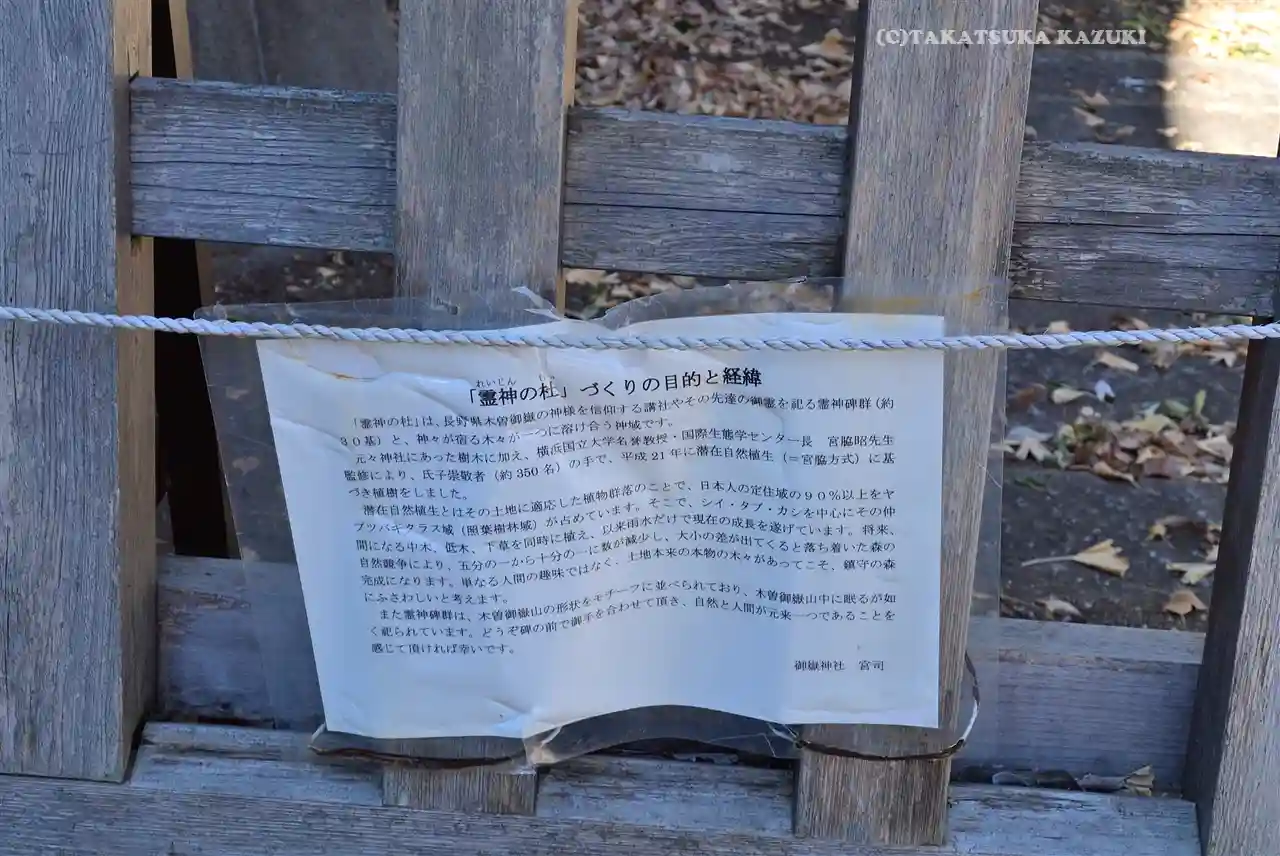 (C)TAKATSUKA KAZUKI
れいじん もり
「霊神の杜」づくりの目的と経緯
「霊神の杜」は、長野県木曽御嶽の神様を信仰する講社やその先達の御霊を祀る霊神碑群（約
３０基）と、神々が宿る木々が一つに溶け合う神域です。
元々神社にあった樹木に加え、横浜国立大学名誉教授・国際生態学センター長　宮脇昭先生
監修により、氏子崇敬者（約350名）の手で、平成21年に潜在自然植生（＝宮脇方式）に基
づき植樹をしました。
潜在自然植生とはその土地に適応した植物群落のことで、日本人の定住域の９０％以上をヤ
ブツバキクラス域（照葉樹林域）が占めています。そこで、シイ・タブ・カシを中心にその仲
間になる中木、低木、下草を同時に植え、以来雨水だけで現在の成長を遂げています。将来、
自然競争により、五分の一から十分の一に数が減少し、大小の差が出てくると落ち着いた森の
完成になります。単なる人間の趣味ではなく、土地本来の本物の木々があってこそ、鎮守の森
にふさわしいと考えます。
また霊神碑群は、木曽御嶽山の形状をモチーフに並べられており、木曽御嶽山中に眠るが如
く祀られています。どうぞ碑の前で御手を合わせて頂き、自然と人間が元来一つであることを
感じて頂ければ幸いです。
御嶽神社　宮司